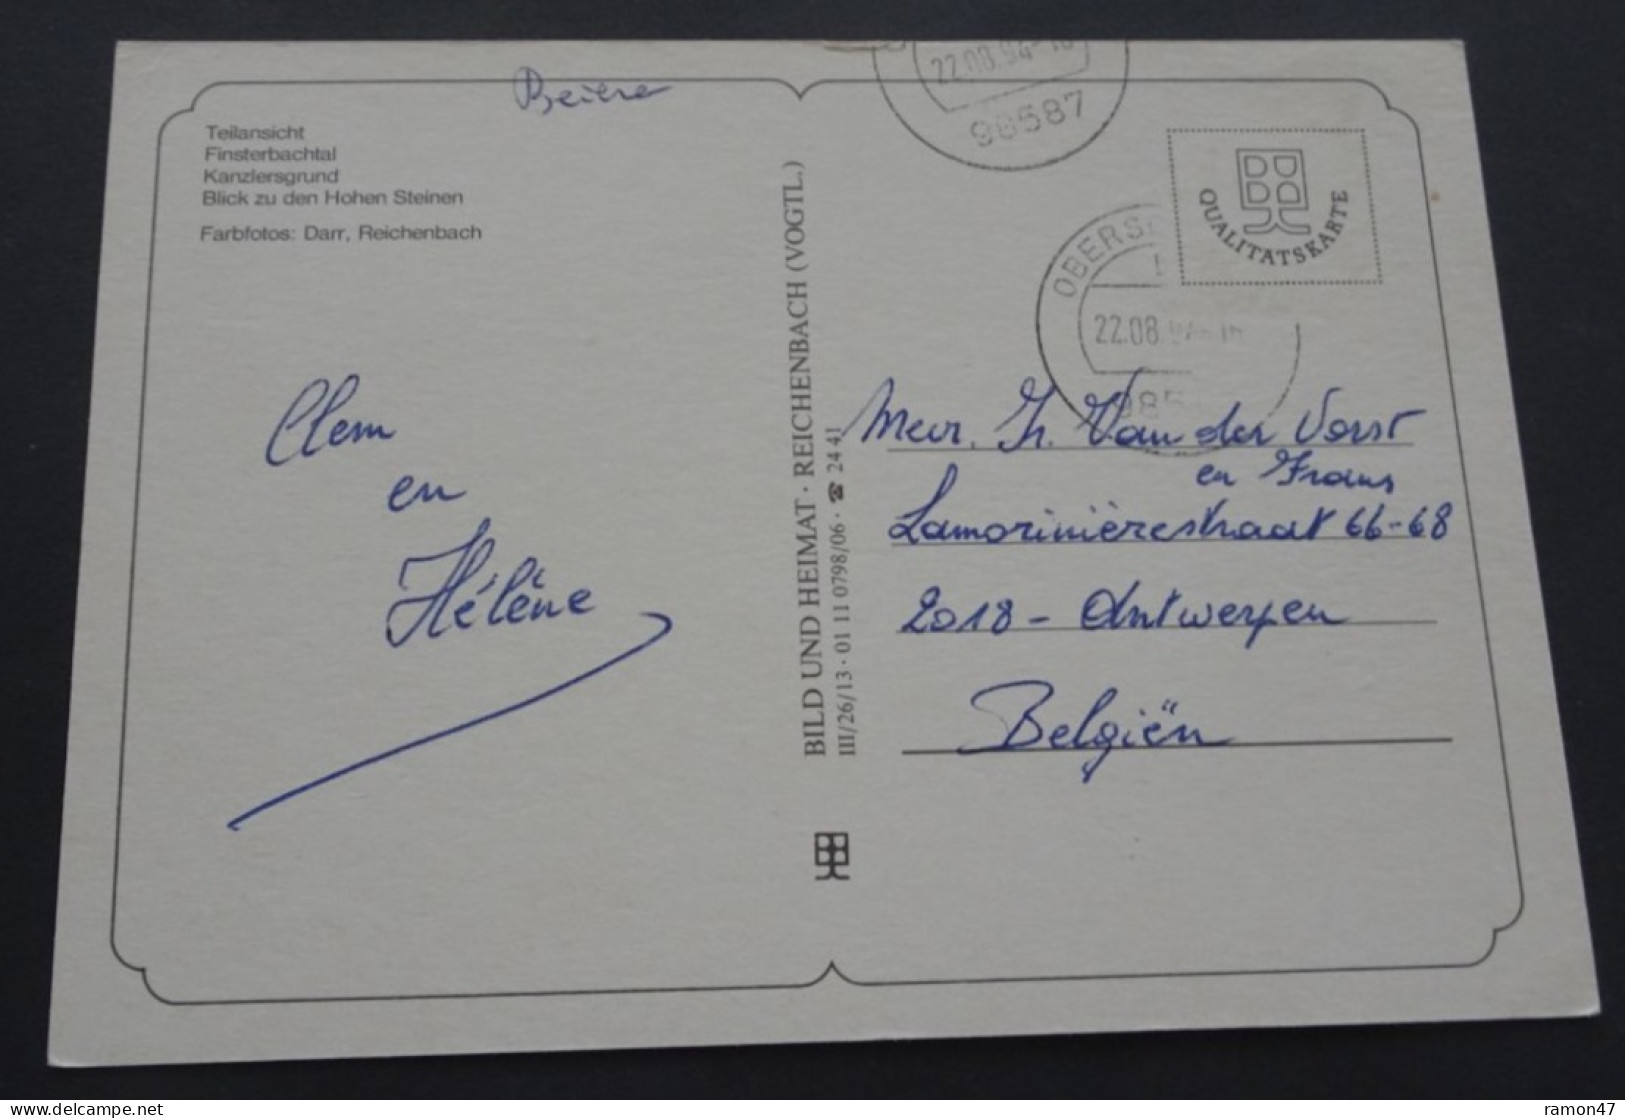 Teilansicht
Finsterbachtal
Kanzlersgrund
Blick zu den Hohen Steinen
Farbfotos: Darr, Reichenbach
Clem
en
Hélène
BILD UND HEIMAT · REICHENBACH (VOGTL.)
III/26/13 · 01 11 0798/06 · ☎ 24 41
22.08.94-18
98587
QUALITÄTSKARTE
OBERS
22.08.
985
Mevr. Van der Vorst
en Frans
Lamorinièrestraat 66-68
2018 - Antwerpen
Belgiën
ramon47